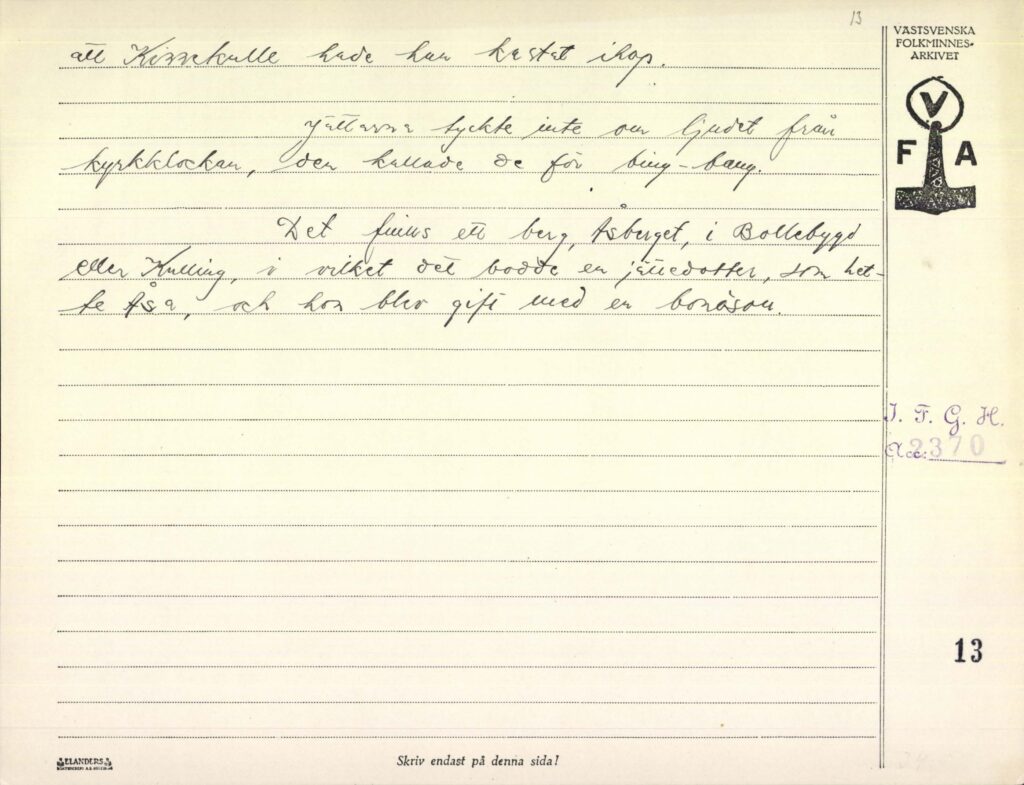 13
VÄSTSVENSKA
FOLKMINNES-
ARKIVET
V
F A
att Kinnekulle hade han kastat ihop.
Jättarna tyckte inte om ljudet från
kyrkklockan, den kallade de för bing-bang.
Det finns ett berg, Åsberget, i Bollebygd
eller Kulling, i vilket det bodde en jättedotter, som het-
te Åsa, och hon blev gift med en bonason.
I. F. G. H.
Acc: 2370
13
ELANDERS
Skriv endast på denna sida!